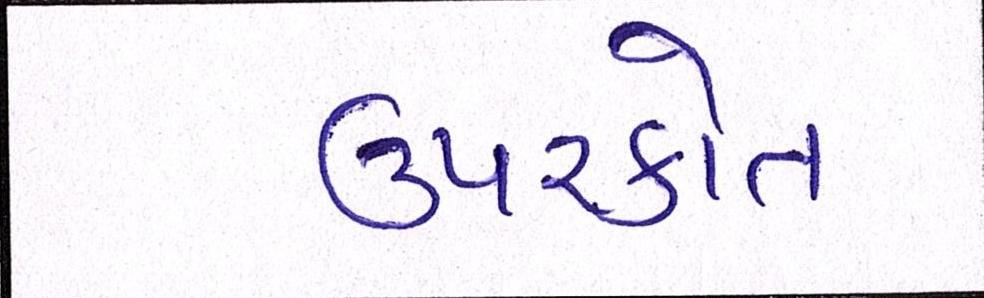 ઉપરકોત